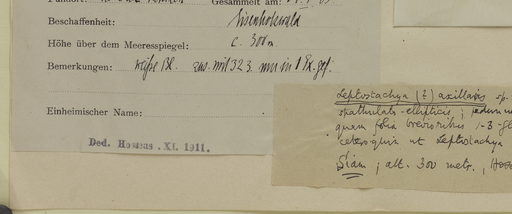 Gesammelt am:
Beschaffenheit: Eisenholzwald
Höhe über dem Meeresspiegel: c. 300m
Bemerkungen: weiße Bl. zus. mit 323 nur in 1 Ex. gef.
Einheimischer Name:
Ded. Hosseus .XI. 1911.
Leptostachya (?) axillaris sp.
spathulato-ellipticis ;
quam folia brevioribus 1-3-fl
ceteroquin ut Leptostachya
Siam ; alt. 300 metr. ,